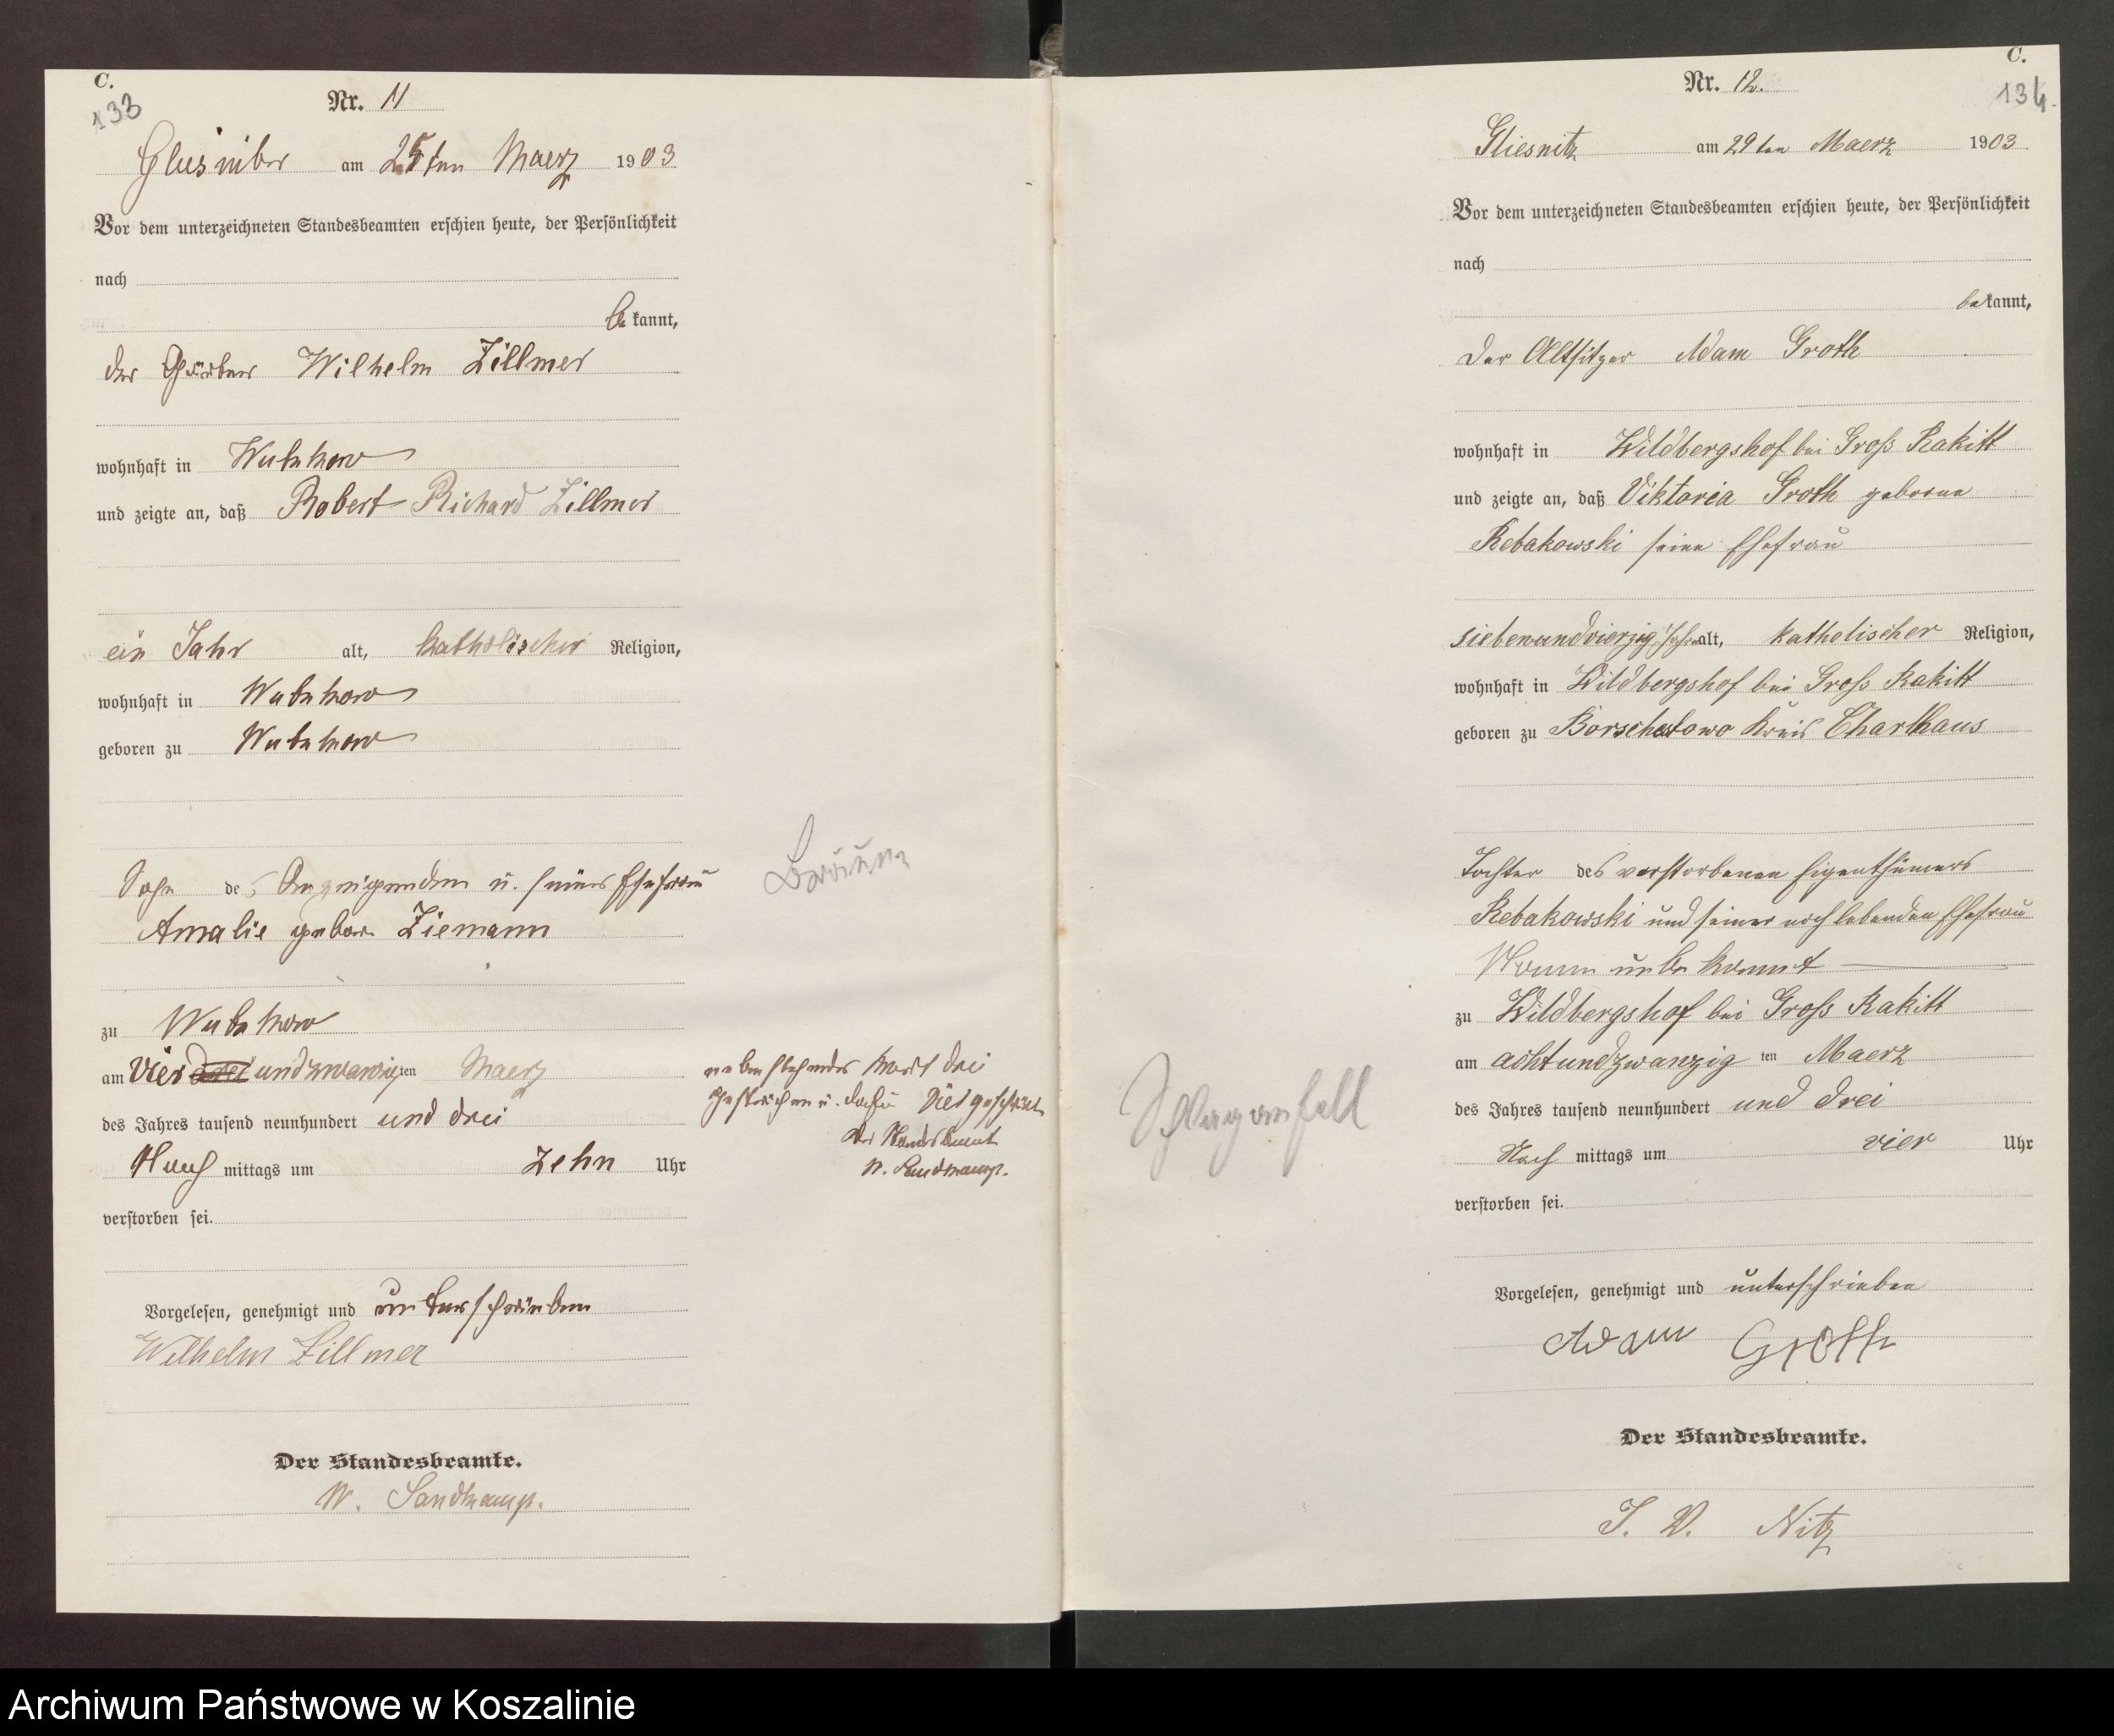 C.
133
Nr. 11
am 25ten Maerz 1903
Vor dem unterzeichneten Standesbeamten erschien heute, der Persönlichkeit
nach
bekannt,
der Wilhelm Zillmer
wohnhaft in Wutzkow
und zeigte an, daß Robert Richard Zillmer
ein Jahr alt, katholischer Religion,
wohnhaft in Wutzkow
geboren zu Wutzkow
Sohn des Anzeigenden u. seiner Ehefrau
Amalie geborn Ziemann
zu Wutzkow
am vier drei undzwanzigten Maerz
des Jahres tausend neunhundert und drei
Nach mittags um Zehn Uhr
verstorben sei.
Vorgelesen, genehmigt und unterschrieben
Wilhelm Zillmer
Der Standesbeamte.
W. Sandkamp.
Bräune
nebenstehendes Wort drei
gestrichen u. dafür
Der Standesbeamte
W. Sandkamp.
C.
134.
Nr. 12.
Gliesnitz am 29ten Maerz 1903
Vor dem unterzeichneten Standesbeamten erschien heute, der Persönlichkeit
nach
bekannt,
der Altsitzer Adam Groth
wohnhaft in Wildbergshof bei Groß Rakitt
und zeigte an, daß Viktoria Groth geborne
Rebakowski seine Ehefrau
siebenundvierzig Jahre alt, katholischer Religion,
wohnhaft in Wildbergshof bei Gross Rakitt
geboren zu Kreis Charthaus
Tochter des verstorbenen Eigenthümers
Rebakowski und seiner noch lebenden Ehefrau
unbekannt
zu Wildbergshof bei Gross Rakitt
am achtundzwanzigten Maerz
des Jahres tausend neunhundert und drei
Nach mittags um vier Uhr
verstorben sei.
Vorgelesen, genehmigt und unterschrieben
Adam Groth
Der Standesbeamte.
J. V. Nitz
Schlaganfall
Archiwum Państwowe w Koszalinie